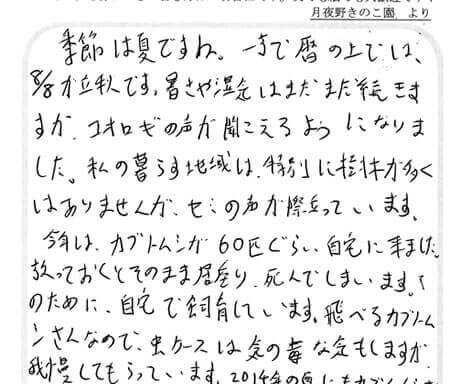 月夜野きのこ園　より
季節は夏ですね。一方で暦の上では、
8/8が立秋です。暑さや湿気はまだまだ続きま
すが、コオロギの声が聞こえるようになりま
した。私の暮らす地域は、特別に樹木が多く
はありませんが、セミの声が際立っています。
今年は、カブトムシが60匹ぐらい、自宅に来ました。
放っておくとそのまま居座り、死んでしまいます。
のために、自宅で飼育しています。飛べるカブトム
シさんなので、虫ケースは気の毒な気もしますが
我慢してもらっています。